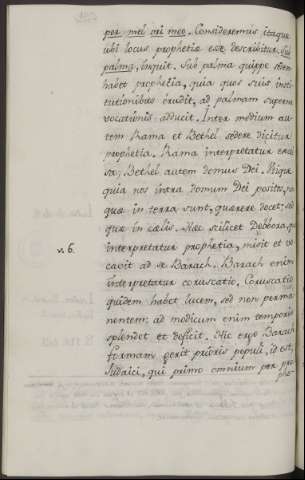 per mel ori meo. Consideremus itaque
ubi locus prophetiæ esse describitur. Sub
palma, inquit. Sub palma quippe sedem
habet prophetia, quia quos suis insti-
tutionibus erudit, ad palmam supernæ
vocationis adducit. Inter medium au-
tem Rama et Bethel sedere dicitur
prophetia. Rama interpretatur excel-
sa; Bethel autem domus Dei.
quia nos intra domum Dei positos, non
quæ in terra sunt, quærere decet; sed
quæ in cælis. Hæc scilicet Debbora, quæ
v. 6. interpretatur prophetia, misit et vo-
cavit ad se Barach. Barach enim
interpretatur coruscatio. Coruscatio
quidem habet lucem, sed non perma-
nentem: ad modicum enim temporis
splendet et deficit. Hic ergo Barach
formam gerit prioris populi, id est,
Judaici, qui primo omnium per pro-
phe-